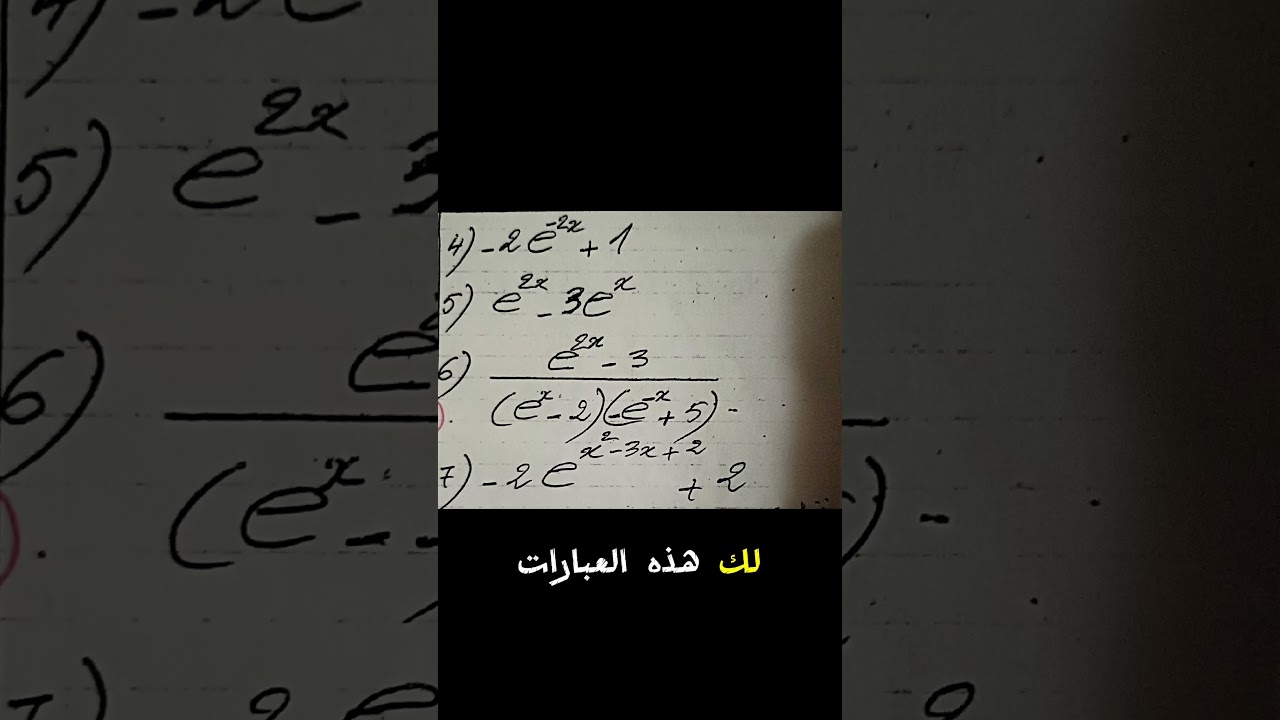 4) -2e^{-2x} + 1
5) e^{2x} - 3e^{x}
6) \frac{e^{2x} - 3}{(e^{x} - 2)(-e^{-x} + 5)}
7) -2e^{x^2 - 3x + 2} + 2
لك هذه العبارات